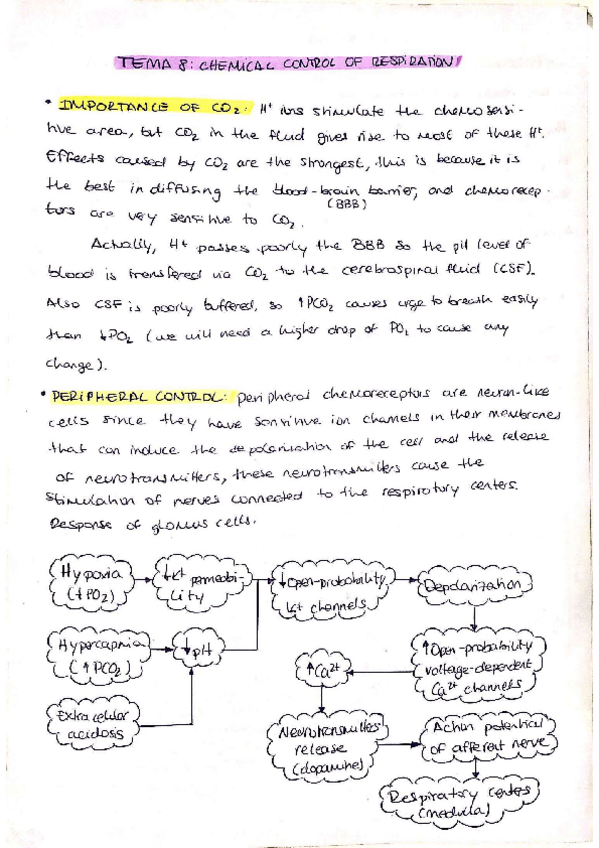 TEMA 8: CHEMICAL CONTROL OF RESPIRATION
• IMPORTANCE OF CO2: H+ ions stimulate the chemosensi-
tive area, but CO2 in the fluid gives rise to most of these H+.
Effects caused by CO2 are the strongest, this is because it is
the best in diffusing the blood-brain barrier, and chemorecep-
(BBB)
tors are very sensitive to CO2.
Actually, H+ passes poorly the BBB so the pH level of
blood is transfered via CO2 to the cerebrospiral fluid (CSF).
Also CSF is poorly buffered, so ↑PCO2 causes urge to breath easily
than ↓PO2 (we will need a higher drop of PO2 to cause any
change).
• PERIPHERAL CONTROL: peripheral chemoreceptors are neuron-like
cells since they have sensitive ion channels in their membranes
that can induce the depolarization of the cell and the release
of neurotransmitters, these neurotransmitters cause the
stimulation of nerves connected to the respiratory centers.
Response of glomus cells.
Hypoxia
(↓PO2)
↓K+ permeabi-
lity
↓Open-probability
K+ channels
Depolarization
Hypercapnia
(↑PCO2)
↓pH
↑Ca2+
↑Open-probability
voltage-dependent
Ca2+ channels
Extracelular
acidosis
Neurotransmitters
release
(dopamine)
Action potential
of afferent nerve
Respiratory center
(medulla)